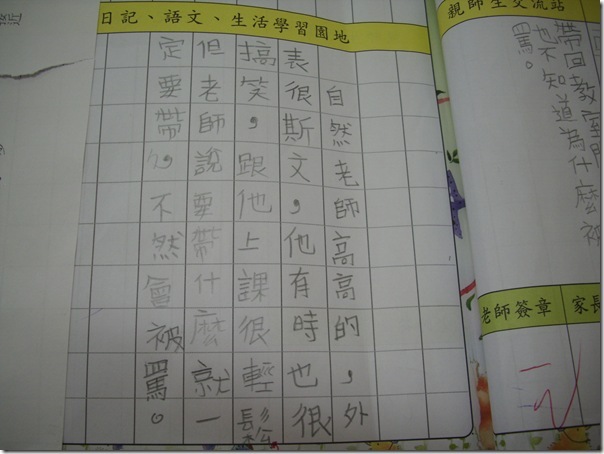 親師生交流站
帶回教室
也不知道為什麼被
罵。
老師簽章
家長
日記、語文、生活學習園地
自然老師高高的，外
表很斯文，他有時也很
搞笑，跟他上課很輕鬆
但老師說要帶什麼就一
定要帶，不然會被罵。
接近